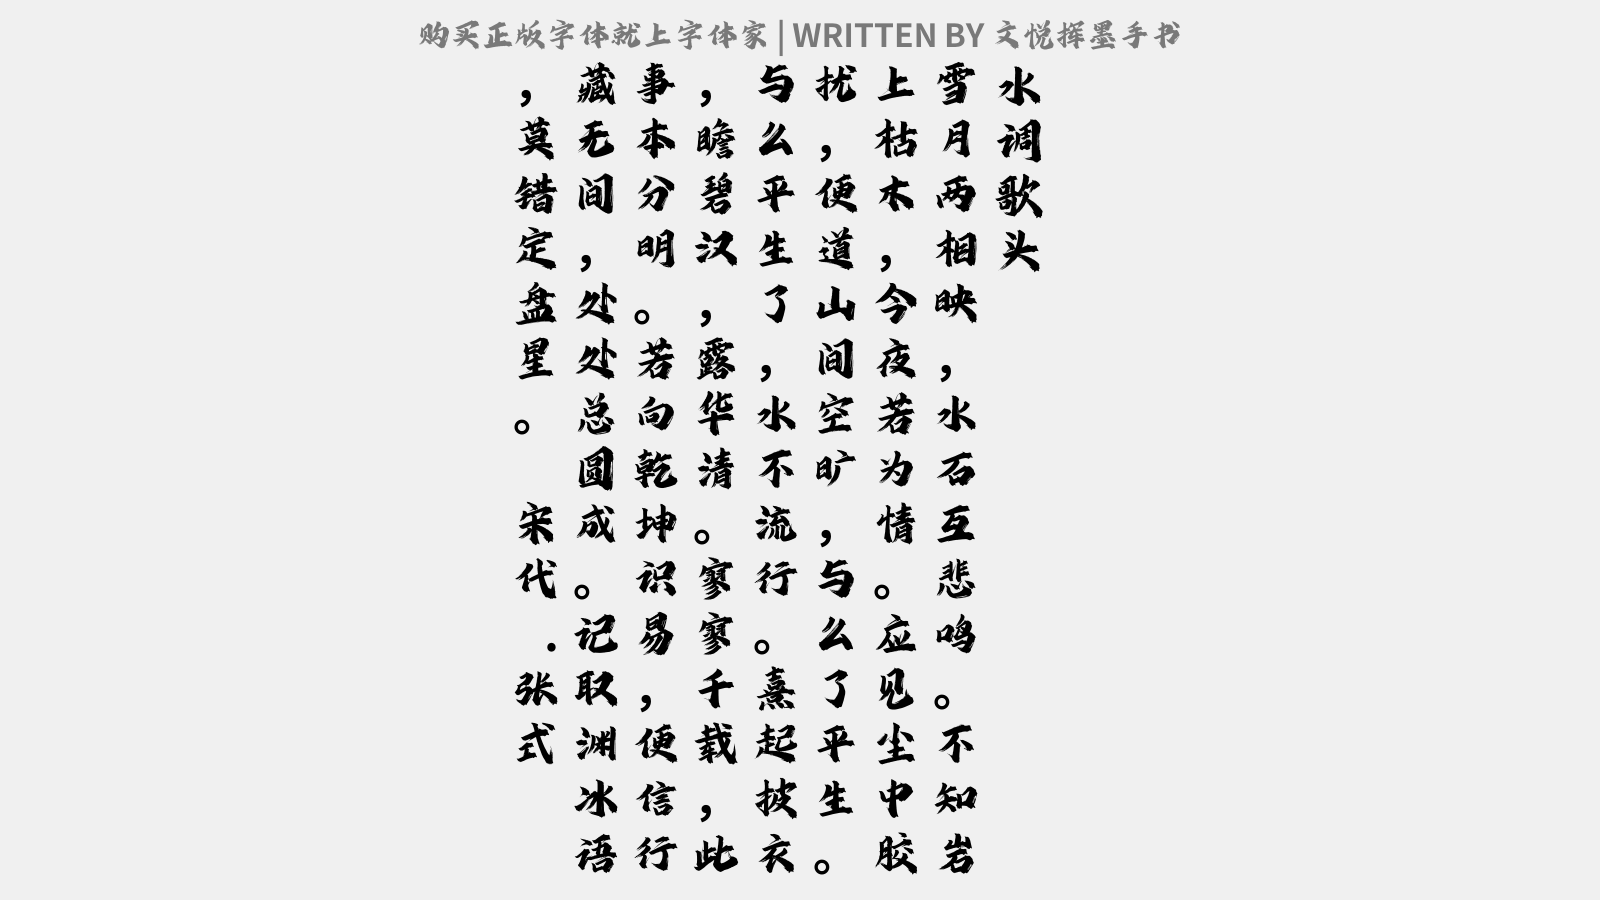 购买正版字体就上字体家 | WRITTEN BY 文悦挥墨手书
水调歌头
雪月两相映，水石互悲鸣。不知岩
上枯木，今夜若为情。应见尘中胶
扰，便道山间空旷，与么了平生。
与么平生了，水不流行。熹起披衣
，瞻碧汉，露华清。寥寥千载，此
事本分明。若向乾坤识易，便信行
藏无间，处处总圆成。记取渊冰语
，莫错定盘星。 宋代 .张式